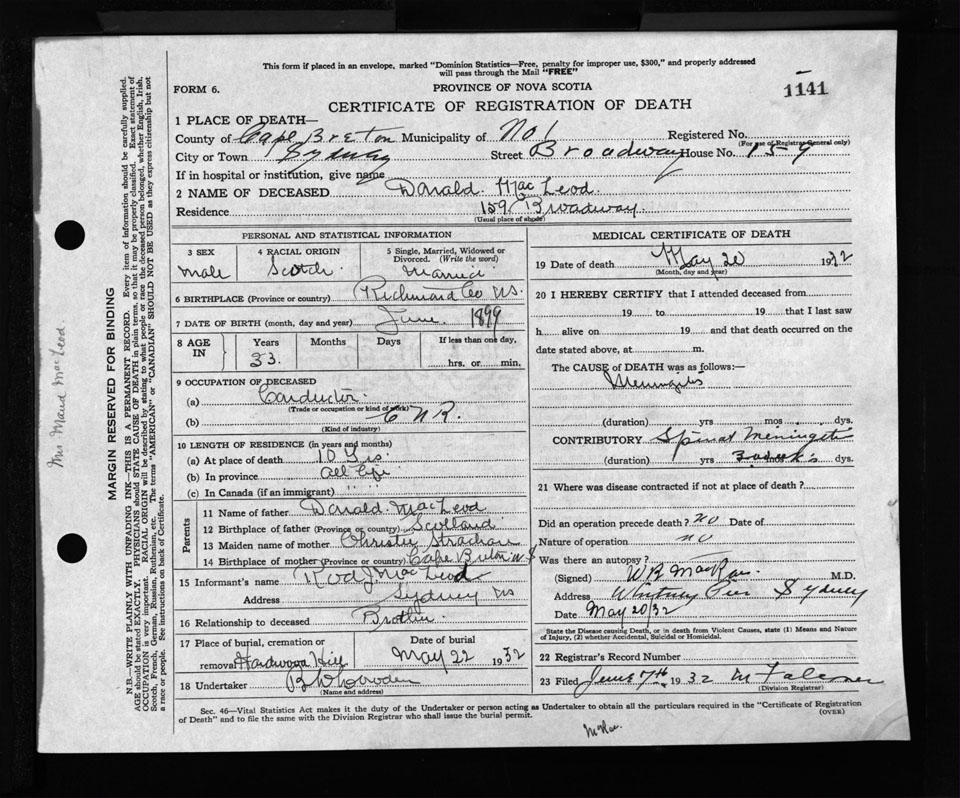 This form if placed in an envelope, marked "Dominion Statistics—Free, penalty for improper use, $300," and properly addressed
will pass through the Mail "FREE"
1141
FORM 6.
PROVINCE OF NOVA SCOTIA
CERTIFICATE OF REGISTRATION OF DEATH
1 PLACE OF DEATH—
County of Cape Breton Municipality of No 1 Registered No.
(For use of Registrar General only)
City or Town Sydney Street Broadway House No. 159
If in hospital or institution, give name
2 NAME OF DECEASED Donald MacLeod
Residence 159 Broadway
(Usual place of abode)
PERSONAL AND STATISTICAL INFORMATION
3 SEX 4 RACIAL ORIGIN 5 Single, Married, Widowed or
Divorced. (Write the word)
Male Scotch
6 BIRTHPLACE (Province or country) Richmond Co NS.
7 DATE OF BIRTH (month, day and year) June 1899
8 AGE IN Years Months Days If less than one day,
33. hrs. or min.
9 OCCUPATION OF DECEASED
(a) Conductor
(Trade or occupation or kind of work)
(b) C N R.
(Kind of industry)
10 LENGTH OF RESIDENCE (in years and months)
(a) At place of death 10 Yrs.
(b) In province all life
(c) In Canada (if an immigrant) " "
Parents
11 Name of father Donald MacLeod
12 Birthplace of father (Province or country) Scotland
13 Maiden name of mother Christie Strachan
14 Birthplace of mother (Province or country) Cape Breton N S
15 Informant's name Rod J MacLeod
Address Sydney NS
16 Relationship to deceased Brother
17 Place of burial, cremation or Date of burial
removal Hardwood Hill May 22 1932
18 Undertaker
(Name and address)
MEDICAL CERTIFICATE OF DEATH
19 Date of death May 20 1932
(Month, day and year)
20 I HEREBY CERTIFY that I attended deceased from
19 to 19 that I last saw
h alive on 19 and that death occurred on the
date stated above, at m.
The CAUSE of DEATH was as follows:—
Meningitis
(duration) yrs mos dys.
CONTRIBUTORY Spinal Meningitis
(duration) yrs mos dys.
21 Where was disease contracted if not at place of death?
Did an operation precede death? no Date of
Nature of operation no
Was there an autopsy?
(Signed) M.D.
Address Whitney Pier Sydney
Date May 20/32
State the Disease causing Death, or in death from Violent Causes, state (1) Means and Nature
of Injury, (2) whether Accidental, Suicidal or Homicidal.
22 Registrar's Record Number
23 Filed June 7th 1932 M Falconer
(Division Registrar)
Sec. 46—Vital Statistics Act makes it the duty of the Undertaker or person acting as Undertaker to obtain all the particulars required in the "Certificate of Registration
of Death" and to file the same with the Division Registrar who shall issue the burial permit.
(OVER)
Mrs Maud MacLeod
MARGIN RESERVED FOR BINDING
N.B.—WRITE PLAINLY WITH UNFADING INK—THIS IS A PERMANENT RECORD. Every item of information should be carefully supplied.
AGE should be stated EXACTLY. PHYSICIANS should STATE CAUSE OF DEATH in plain terms, so that it may be properly classified. Exact statement of
OCCUPATION is very important. RACIAL ORIGIN will be described by stating to what people or race the deceased person belonged, whether English, Irish,
Scotch, French, German, Russian, Ruthenian, etc. The terms "AMERICAN" or "CANADIAN" SHOULD NOT BE USED as they express citizenship but not
a race or people. See instructions on back of Certificate.